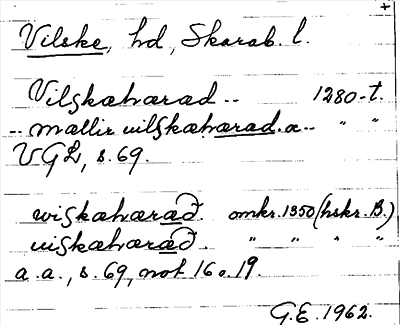 +
Vilske, hd, Skarab. l.
Vilskæhærad -- 1280-t.
-- mællir uilskæhærad. a -- " "
VGL, s. 69.
wiskæhæræd. omkr. 1350 (hskr. B.)
uiskæhæræd. " " " "
a. a., s. 69, not 16 o. 19.
G. E. 1962.